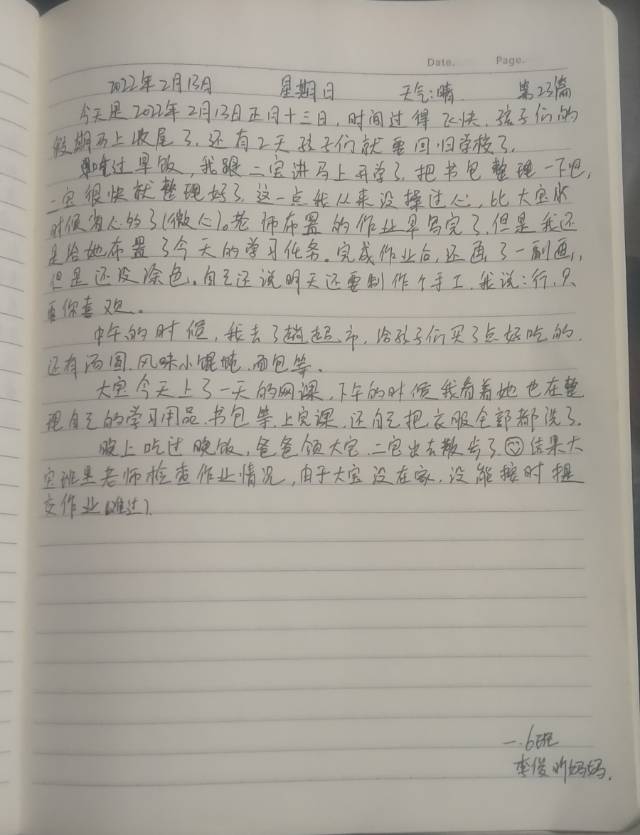 Date.      Page.
2022年2月13日    星期日    天气:晴    第23篇
今天是2022年2月13日正月十三日,时间过得飞快,孩子们的
假期马上收尾了,还有2天孩子们就要回归学校了。
吃过早饭,我跟二宝讲马上开学了,把书包整理一下吧,
二宝很快就整理好了,这一点我从来没操过心,比大宝小
时候省心多了(微心)。老师布置的作业早写完了,但是我还
是给她布置了今天的学习任务。完成作业后,还画了一副画,
但是还没涂色。自己还说明天还要制作个手工,我说:行,只
要你喜欢。
中午的时候,我去了趟超市,给孩子们买了点好吃的,
还有汤圆、风味小馄饨、面包等。
大宝今天上了一天的网课,下午的时候我看着她也在整
理自己的学习用品、书包等,上完课,还自己把衣服全部都洗了。
晚上吃过晚饭,爸爸领大宝、二宝出去散步了结果大
宝班里老师检查作业情况,由于大宝没在家,没能按时提
交作业(难过)。
一.6班
李俊昕妈妈.